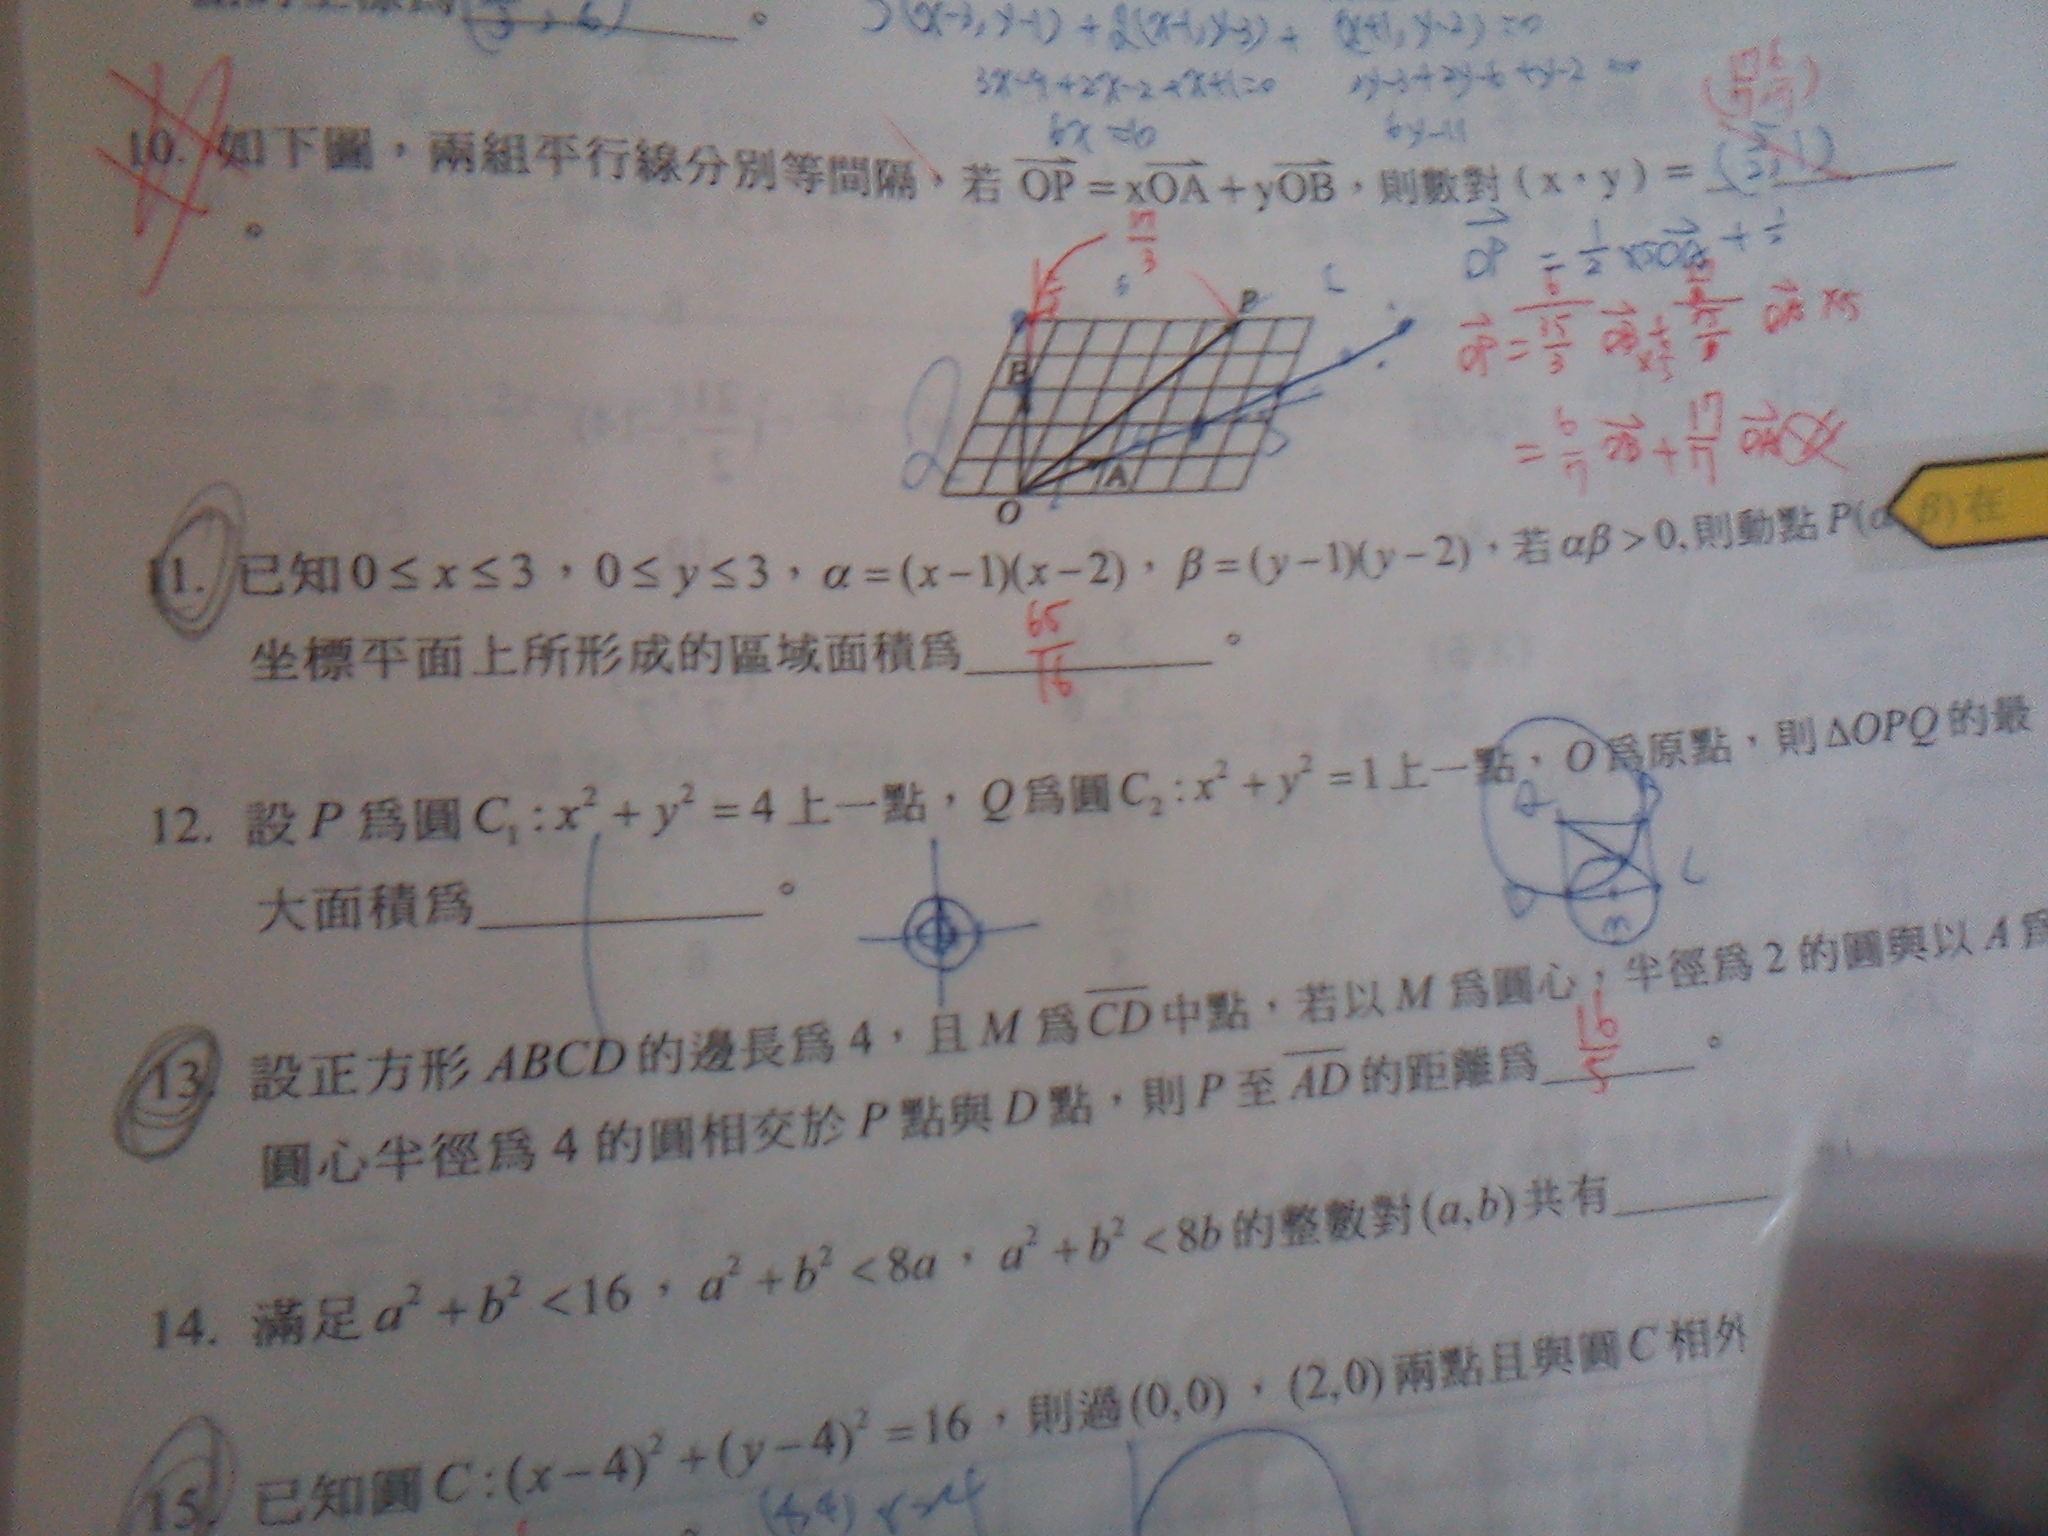 3(x-3, y-1) + 2(x-1, y-3) + (x+1, y-2) = 0
3x-9+2x-2+x+1=0
6x = 10
6y-11
10. 如下圖，兩組平行線分別等間隔，若 OP = xOA + yOB，則數對 ( x，y ) =
。
17/3
P
B
A
O
= 6/7 OB + 17/7 OA
11. 已知 0 ≤ x ≤ 3，0 ≤ y ≤ 3，α = (x−1)(x−2)，β = (y−1)(y−2)，若 αβ > 0, 則動點 P(α β) 在
坐標平面上所形成的區域面積為 65/16 。
12. 設 P 為圓 C₁ : x² + y² = 4 上一點，Q 為圓 C₂ : x² + y² = 1 上一點，O 為原點，則 ΔOPQ 的最
大面積為______。
13. 設正方形 ABCD 的邊長為 4，且 M 為 CD 中點，若以 M 為圓心，半徑為 2 的圓與以 A 為
圓心半徑為 4 的圓相交於 P 點與 D 點，則 P 至 AD 的距離為 16/5 。
14. 滿足 a² + b² < 16，a² + b² < 8a，a² + b² < 8b 的整數對 (a,b) 共有______
15. 已知圓 C : (x−4)² + (y−4)² = 16，則過 (0,0)，(2,0) 兩點且與圓 C 相外
(4,4) r=4